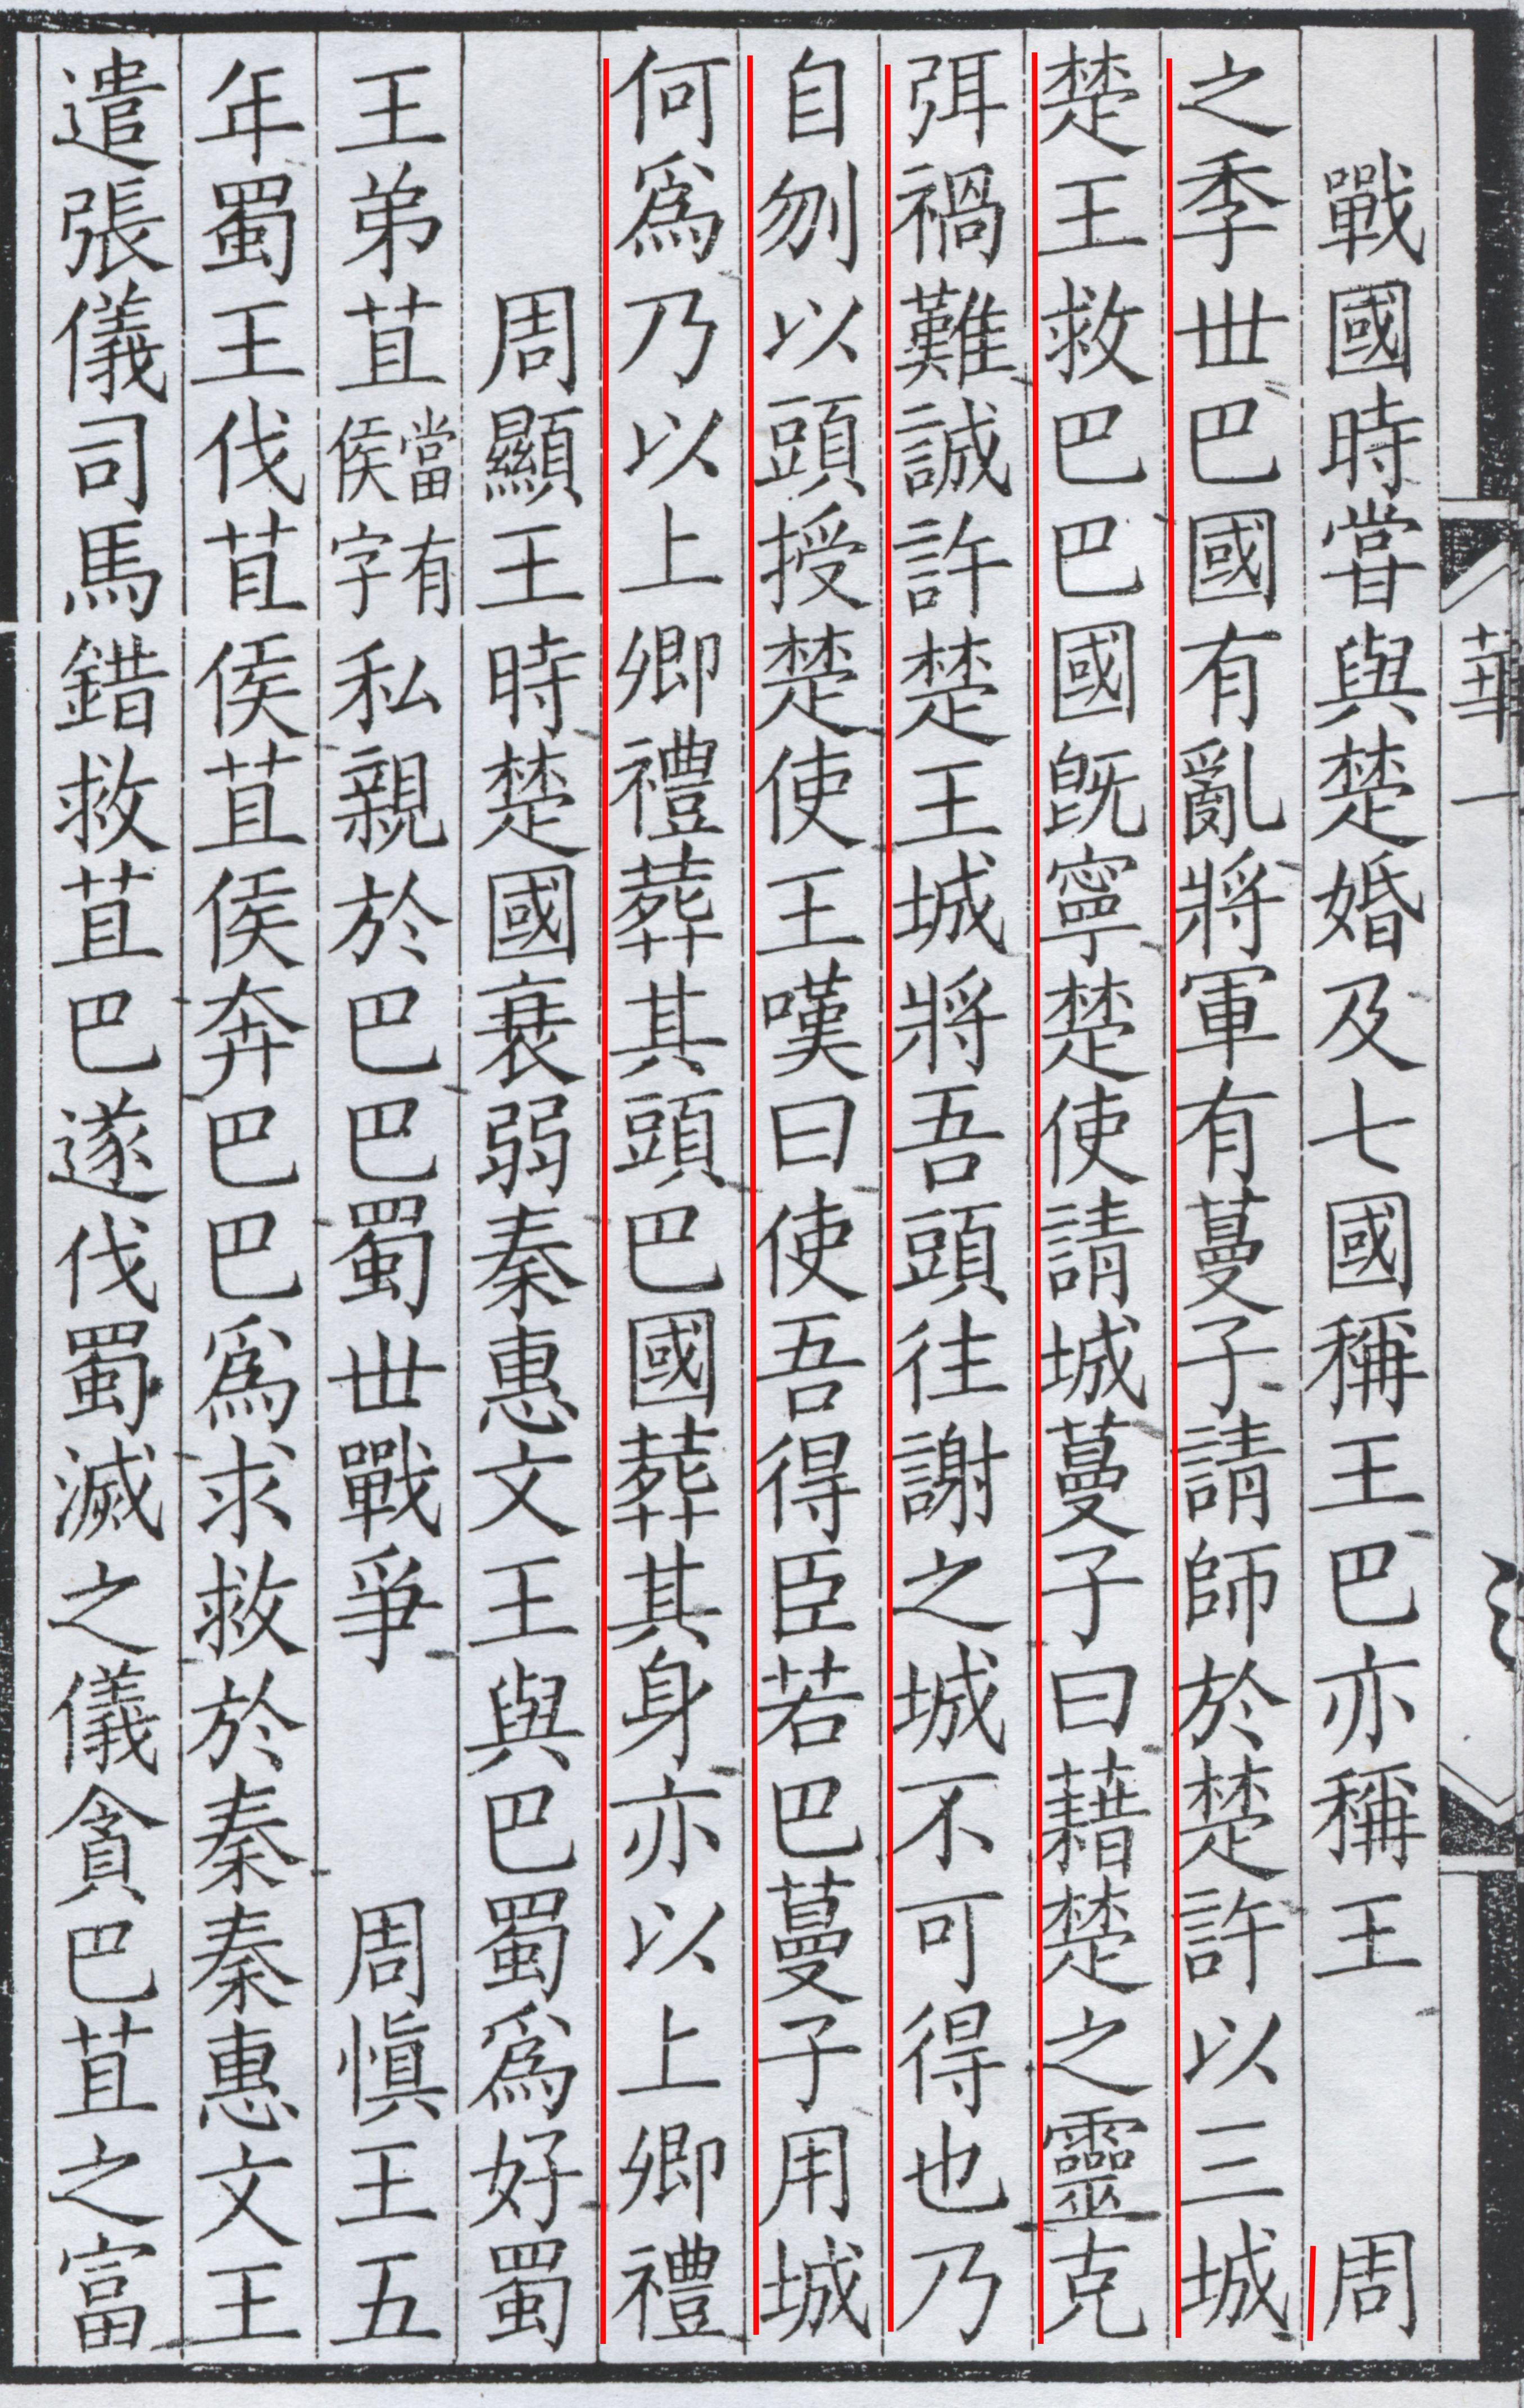 戰國時甞與楚婚及七國稱王巴亦稱王 周
之季丗巴國有亂將軍有蔓子請師於楚許以三城
楚王救巴巴國旣寧楚使請城蔓子曰藉楚之靈克
弭禍難誠許楚王城將吾頭往謝之城不可得也乃
自刎以頭授楚使王嘆曰使吾得臣若巴蔓子用城
何爲乃以上卿禮葬其頭巴國葬其身亦以上卿禮
周顯王時楚國衰弱秦惠文王與巴蜀爲好蜀
王弟苴當有侯字私親於巴巴蜀丗戰爭 周愼王五
年蜀王伐苴侯苴侯奔巴巴爲求救於秦秦惠文王
遣張儀司馬錯救苴巴遂伐蜀滅之儀貪巴苴之富
華一